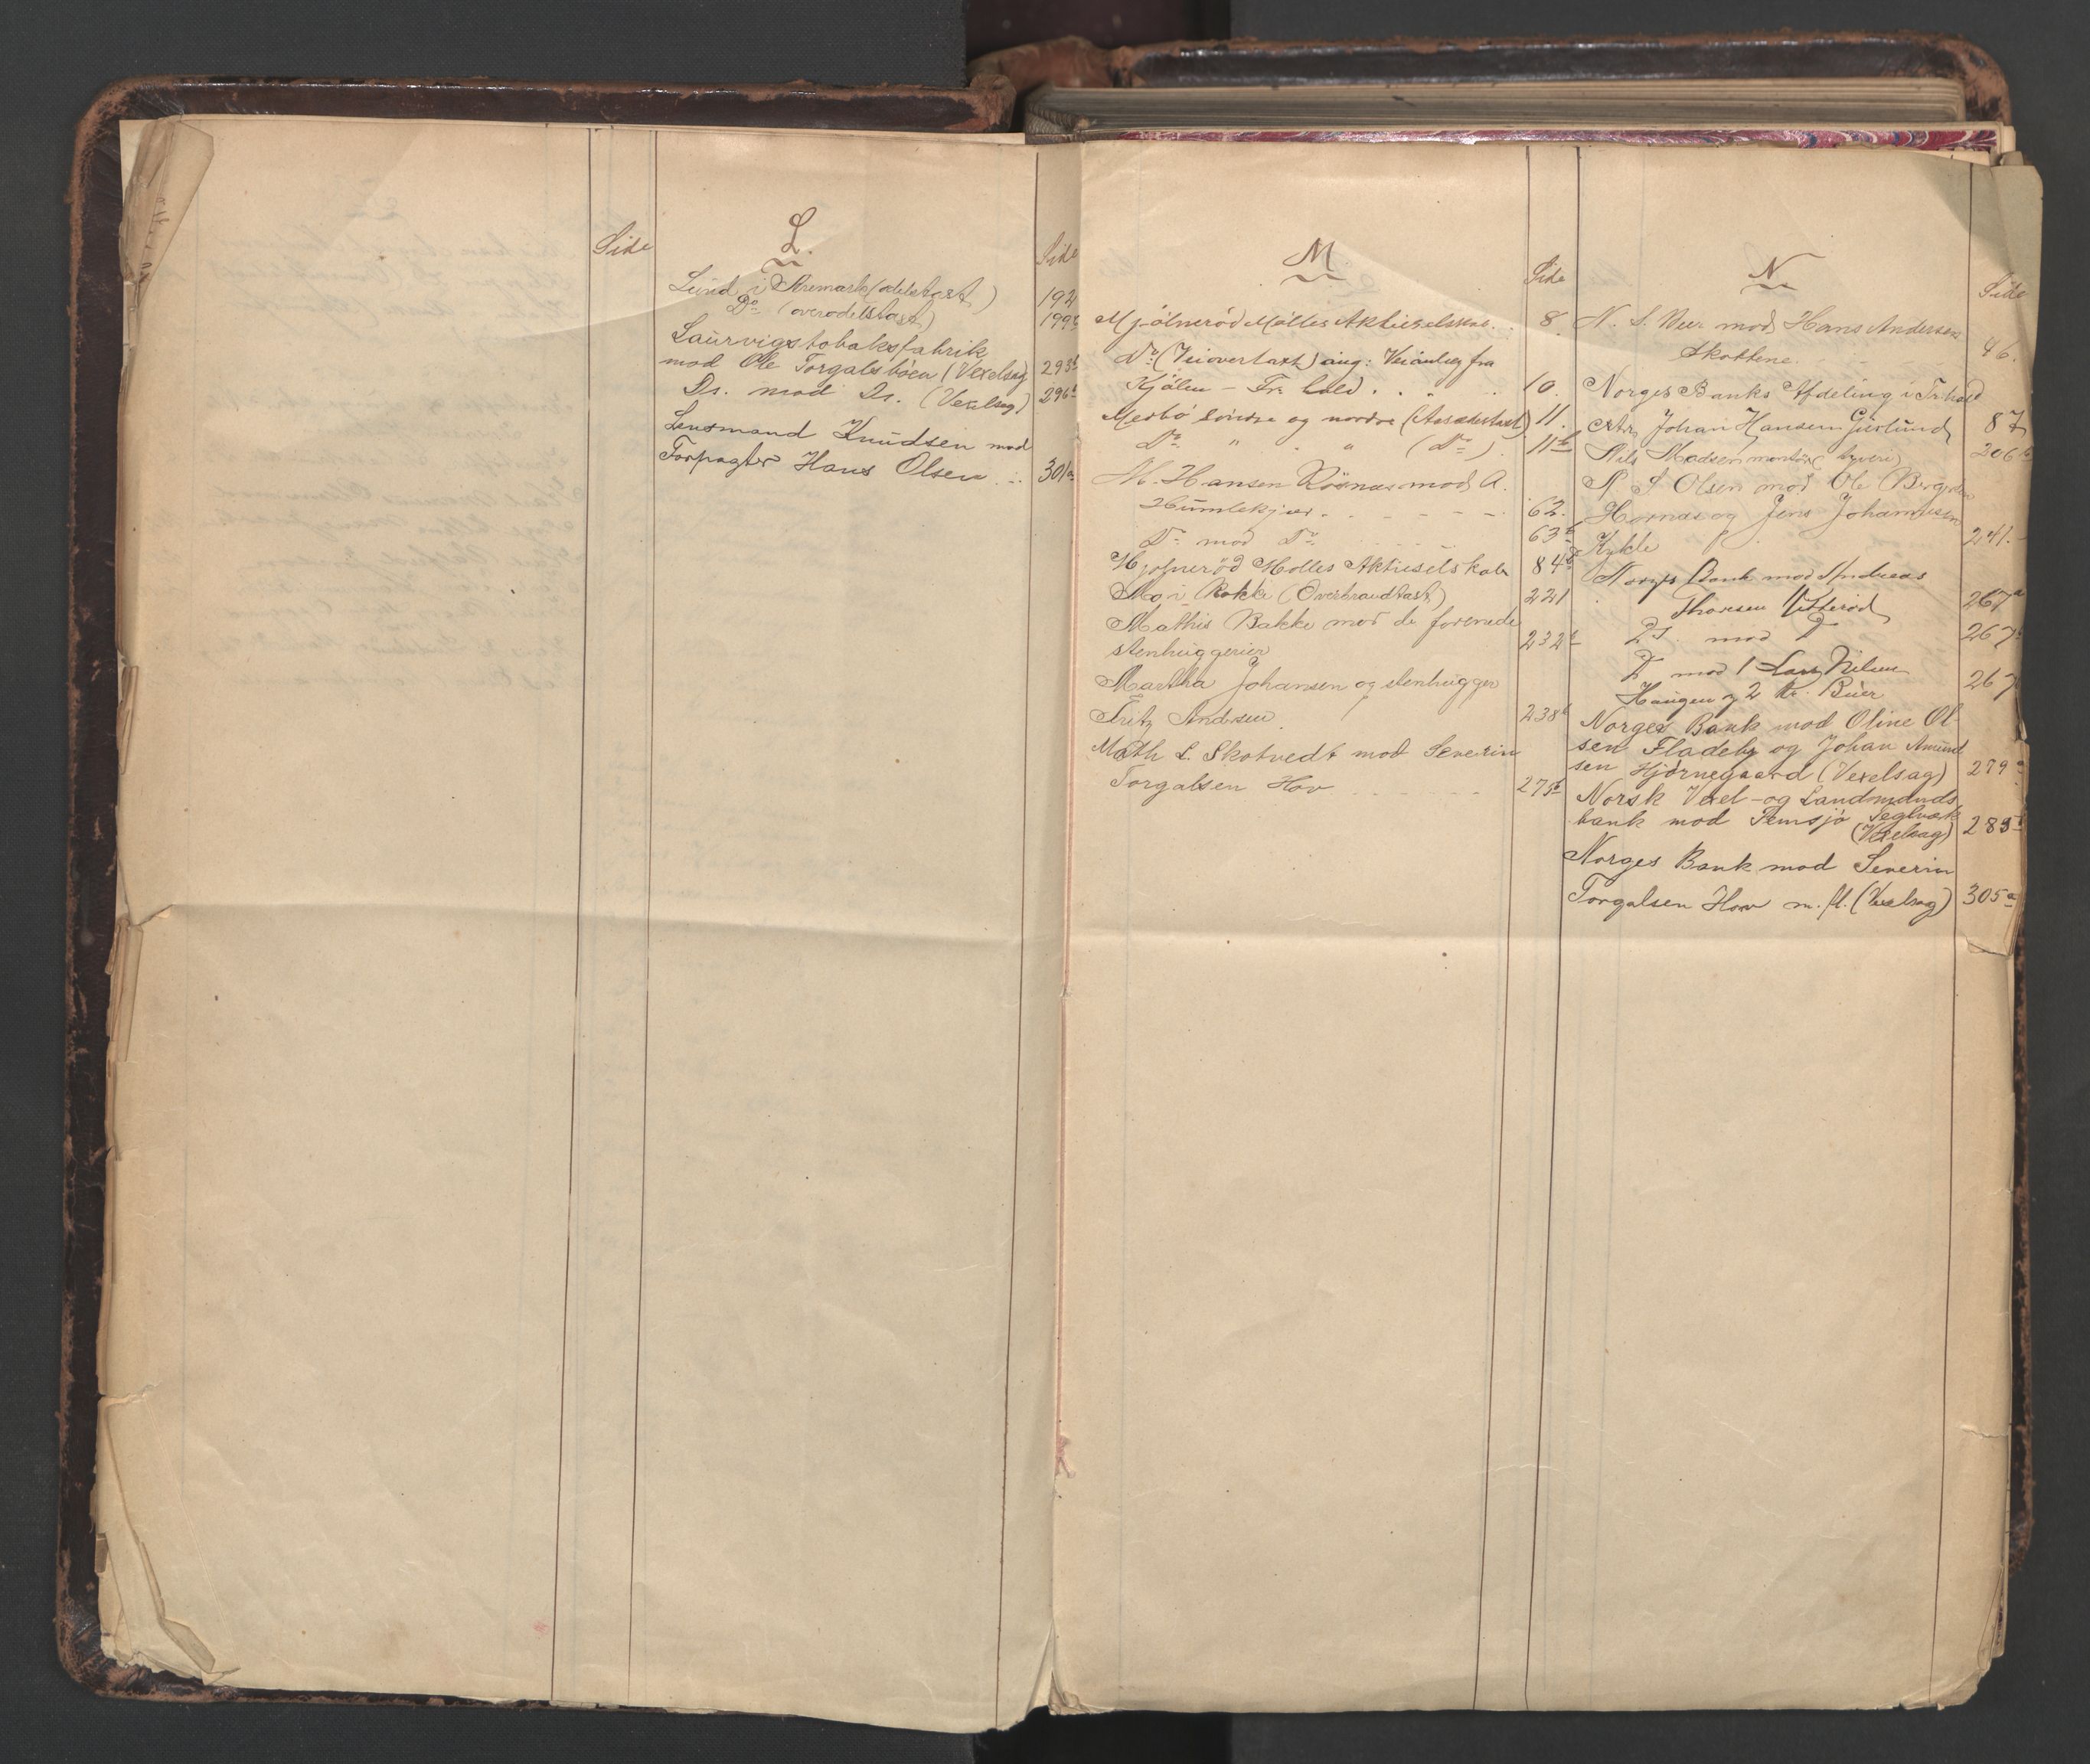 Side
L.
Side
Lund i Aremark (odelstaxt) 192
Do (overodelstaxt) 199b
Laurvigs tobaksfabrik
mod Ole Torgalsbøen (Vexelsag) 293b
Do. mod Do. (Vexelsag) 296b
Lensmand Knudsen mod
Forpagter Hans Olsen 301a
M
Side
Mjølnerød Mølles Aktieselskab. 8.
Do (Veiovertaxt) ang: Veianlæg fra
Kjølen - Fr. hald. 10.
Medbø søndre og nordre (Aasædestaxt) 11.
Do " " (Do) 11b
M. Hansen Røsnæs mod A.
Humlekjær. 62.
Do mod Do 63b
Mjølnerød Mølles Aktieselskab 84b
Mo i Rokke (Overbrandtaxt) 221
Mathis Bakke mod de forenede
stenhuggerier 232b
Martha Johansen og stenhugger
Fritz Andersen 238b
Math L. Skotvedt mod Severin
Torgalsen Hov 275b
N
Side
N. S. Beer mod Hans Andersen
Skottene. 46.
Norges Banks Afdeling i Fr.hald
ctr. Johan Hansen Gjerlund 87
Nils Madsen montør (tyveri) 206b
N S Olsen mod Ole Bergersen
Hornæs og Jens Johannesen
Kykle 241.
Norges Bank mod Andreas
Thorsen Vitterød 267a
Do. mod Do 267
Do mod 1 Lars Nilsen
Haugen og 2 Kr. Buer 267
Norges Bank mod Oline Ol-
sen Fladeby og Johan Amund
sen Hjørnegaard (Vexelsag) 279a
Norsk Vexel- og Landmands
bank mod Femsjø Teglværk
(Vexelsag) 285b
Norges Bank mod Severin
Torgalsen Hov m. fl. (Vexelsag) 305a